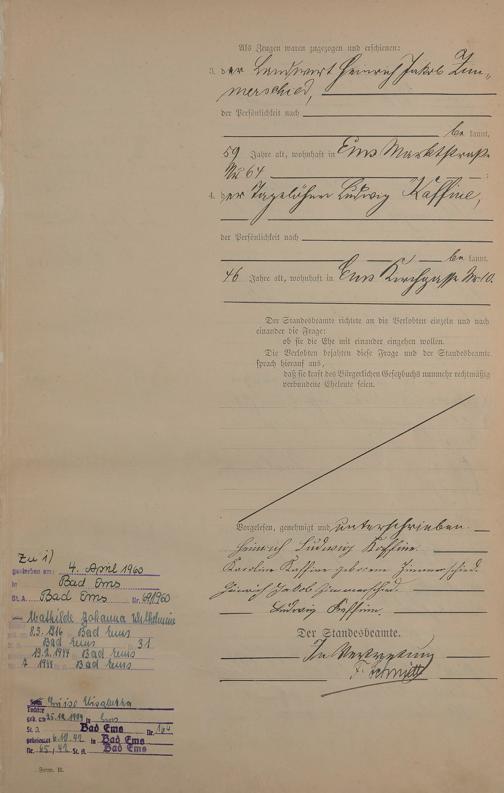 Als Zeugen waren zugezogen und erschienen:
3. der Landwirt Heinrich Jakob Zim-
merschied,
der Persönlichkeit nach
be kannt,
59 Jahre alt, wohnhaft in Ems Marktstraße
Nr 64
4. der Tagelöhner Ludwig Kaffine,
der Persönlichkeit nach
be kannt,
46 Jahre alt, wohnhaft in Ems Kirchgasse Nr 10.
Der Standesbeamte richtete an die Verlobten einzeln und nach
einander die Frage:
ob sie die Ehe mit einander eingehen wollen.
Die Verlobten bejahten diese Frage und der Standesbeamte
sprach hierauf aus,
daß sie kraft des Bürgerlichen Gesetzbuchs nunmehr rechtmäßig
verbundene Eheleute seien.
Vorgelesen, genehmigt und unterschrieben.
Heinrich Ludwig Kaffine.
Karoline Kaffine geborene Zimmerschied.
Heinrich Jakob Zimmerschied.
Ludwig Kaffine.
Der Standesbeamte.
In Vertretung
Schmitt
Zu 1)
gestorben am: 4. April 1960
in Bad Ems
St.A. Bad Ems Nr. 69/1960
Mathilde Johanna Wilhelmine
8.3. 1916 Bad Ems
Bad Ems 31
Bad Ems
1941 Bad Ems
Luise Elisabetha
Tochter
geb. am 25.12.1919 in Ems
St. A. Bad Ems Nr.
geheiratet in Bad Ems
Nr. St. A. Bad Ems
Form. B.